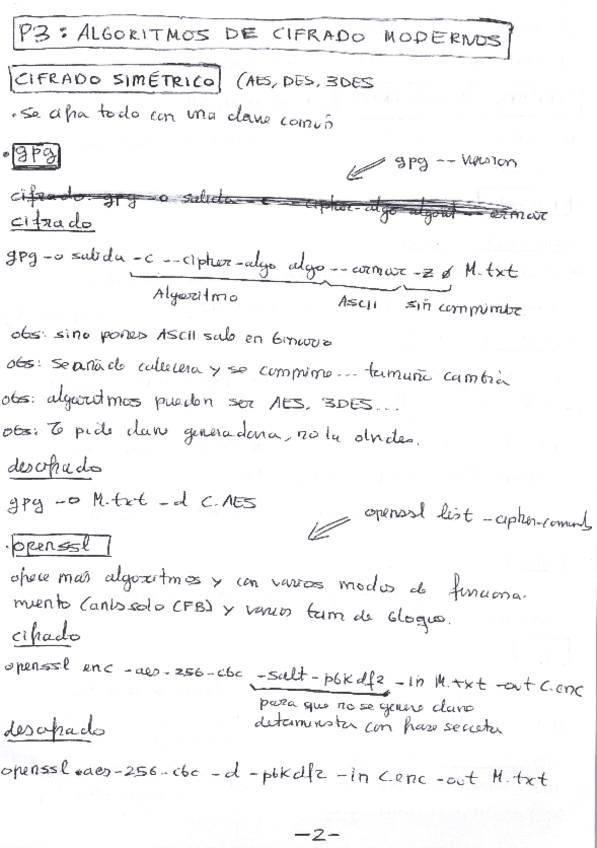 P3: ALGORITMOS DE CIFRADO MODERNOS
CIFRADO SIMÉTRICO (AES, DES, 3DES
• se cifra todo con una clave común
• gpg
gpg --version
cifrado: gpg -o salida -c --cipher-algo algorit -- armor
cifrado
gpg -o salida -c --cipher-algo algo --armor -z 0 M.txt
Algoritmo ASCII sin comprimir
obs: sino pones ASCII sale en binario
obs: se añade cabecera y se comprime... tamaño cambia
obs: algoritmos pueden ser AES, 3DES...
obs: Te pide clave generadora, no la olvides.
descifrado
gpg -o M.txt -d C.AES
openssl list -cipher-commands
• openssl
ofrece más algoritmos y con varios modos de funciona-
miento (antes solo CFB) y varios tam de bloque.
cifrado
openssl enc -aes-256-cbc -salt -pbkdf2 -in M.txt -out C.enc
para que no se genere clave
determinista con frase secreta
descifrado
openssl aes-256-cbc -d -pbkdf2 -in C.enc -out M.txt
-2-